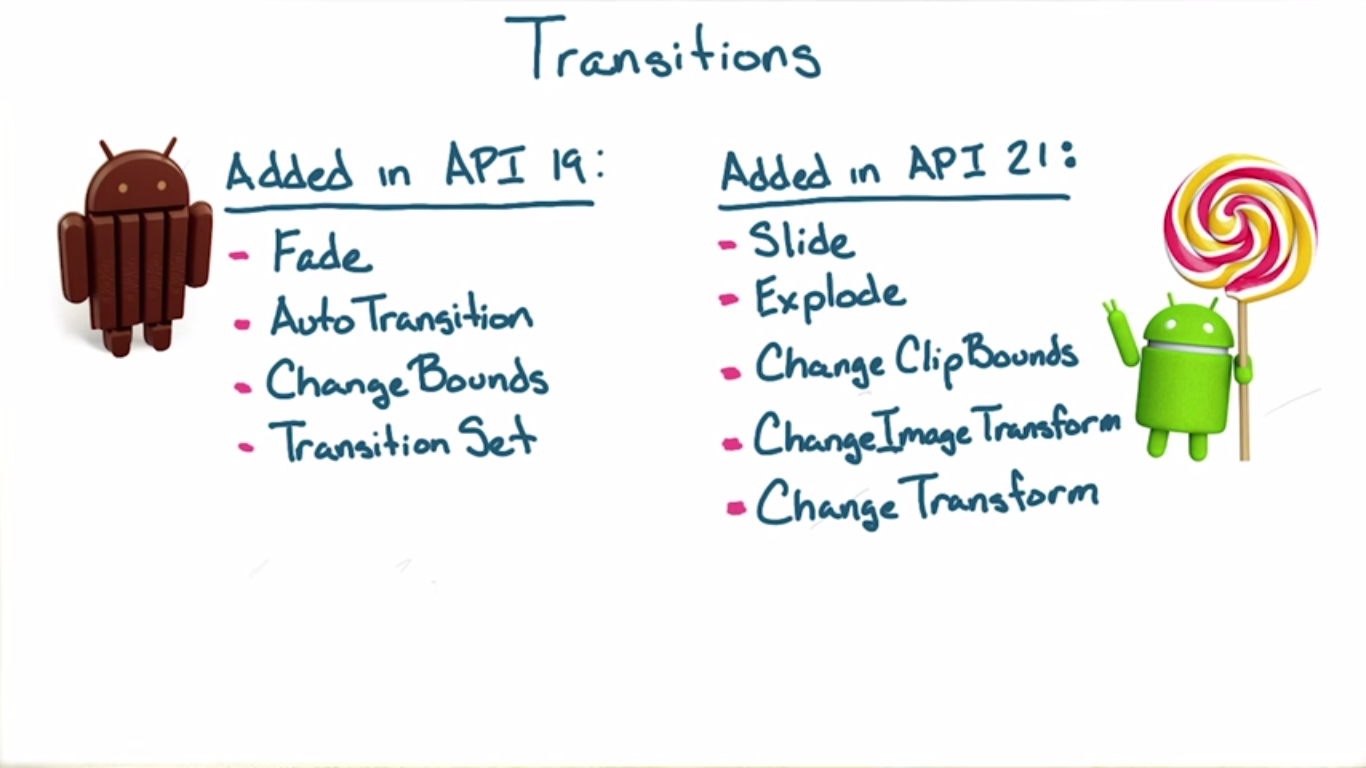 Transitions
Added in API 19:
- Fade
- AutoTransition
- ChangeBounds
- Transition Set
Added in API 21:
- Slide
- Explode
- Change ClipBounds
- ChangeImageTransform
- ChangeTransform